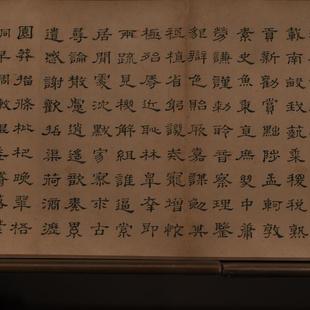 載南畝我蓺黍稷稅熟
貢新勸賞黜陟孟軻敦
素史魚秉直庶幾中庸
勞謙謹敕聆音察理鑒
貌辯色貽厥嘉猷勉其
祗植省躬譏誡寵增抗
極殆辱近恥林皋幸即
兩疏見機解組誰逼索
居閒處沉默寂寥求古
尋論散慮逍遙欣奏累
遣慼謝歡招渠荷的歷
園莽抽條枇杷晚翠梧
桐早凋